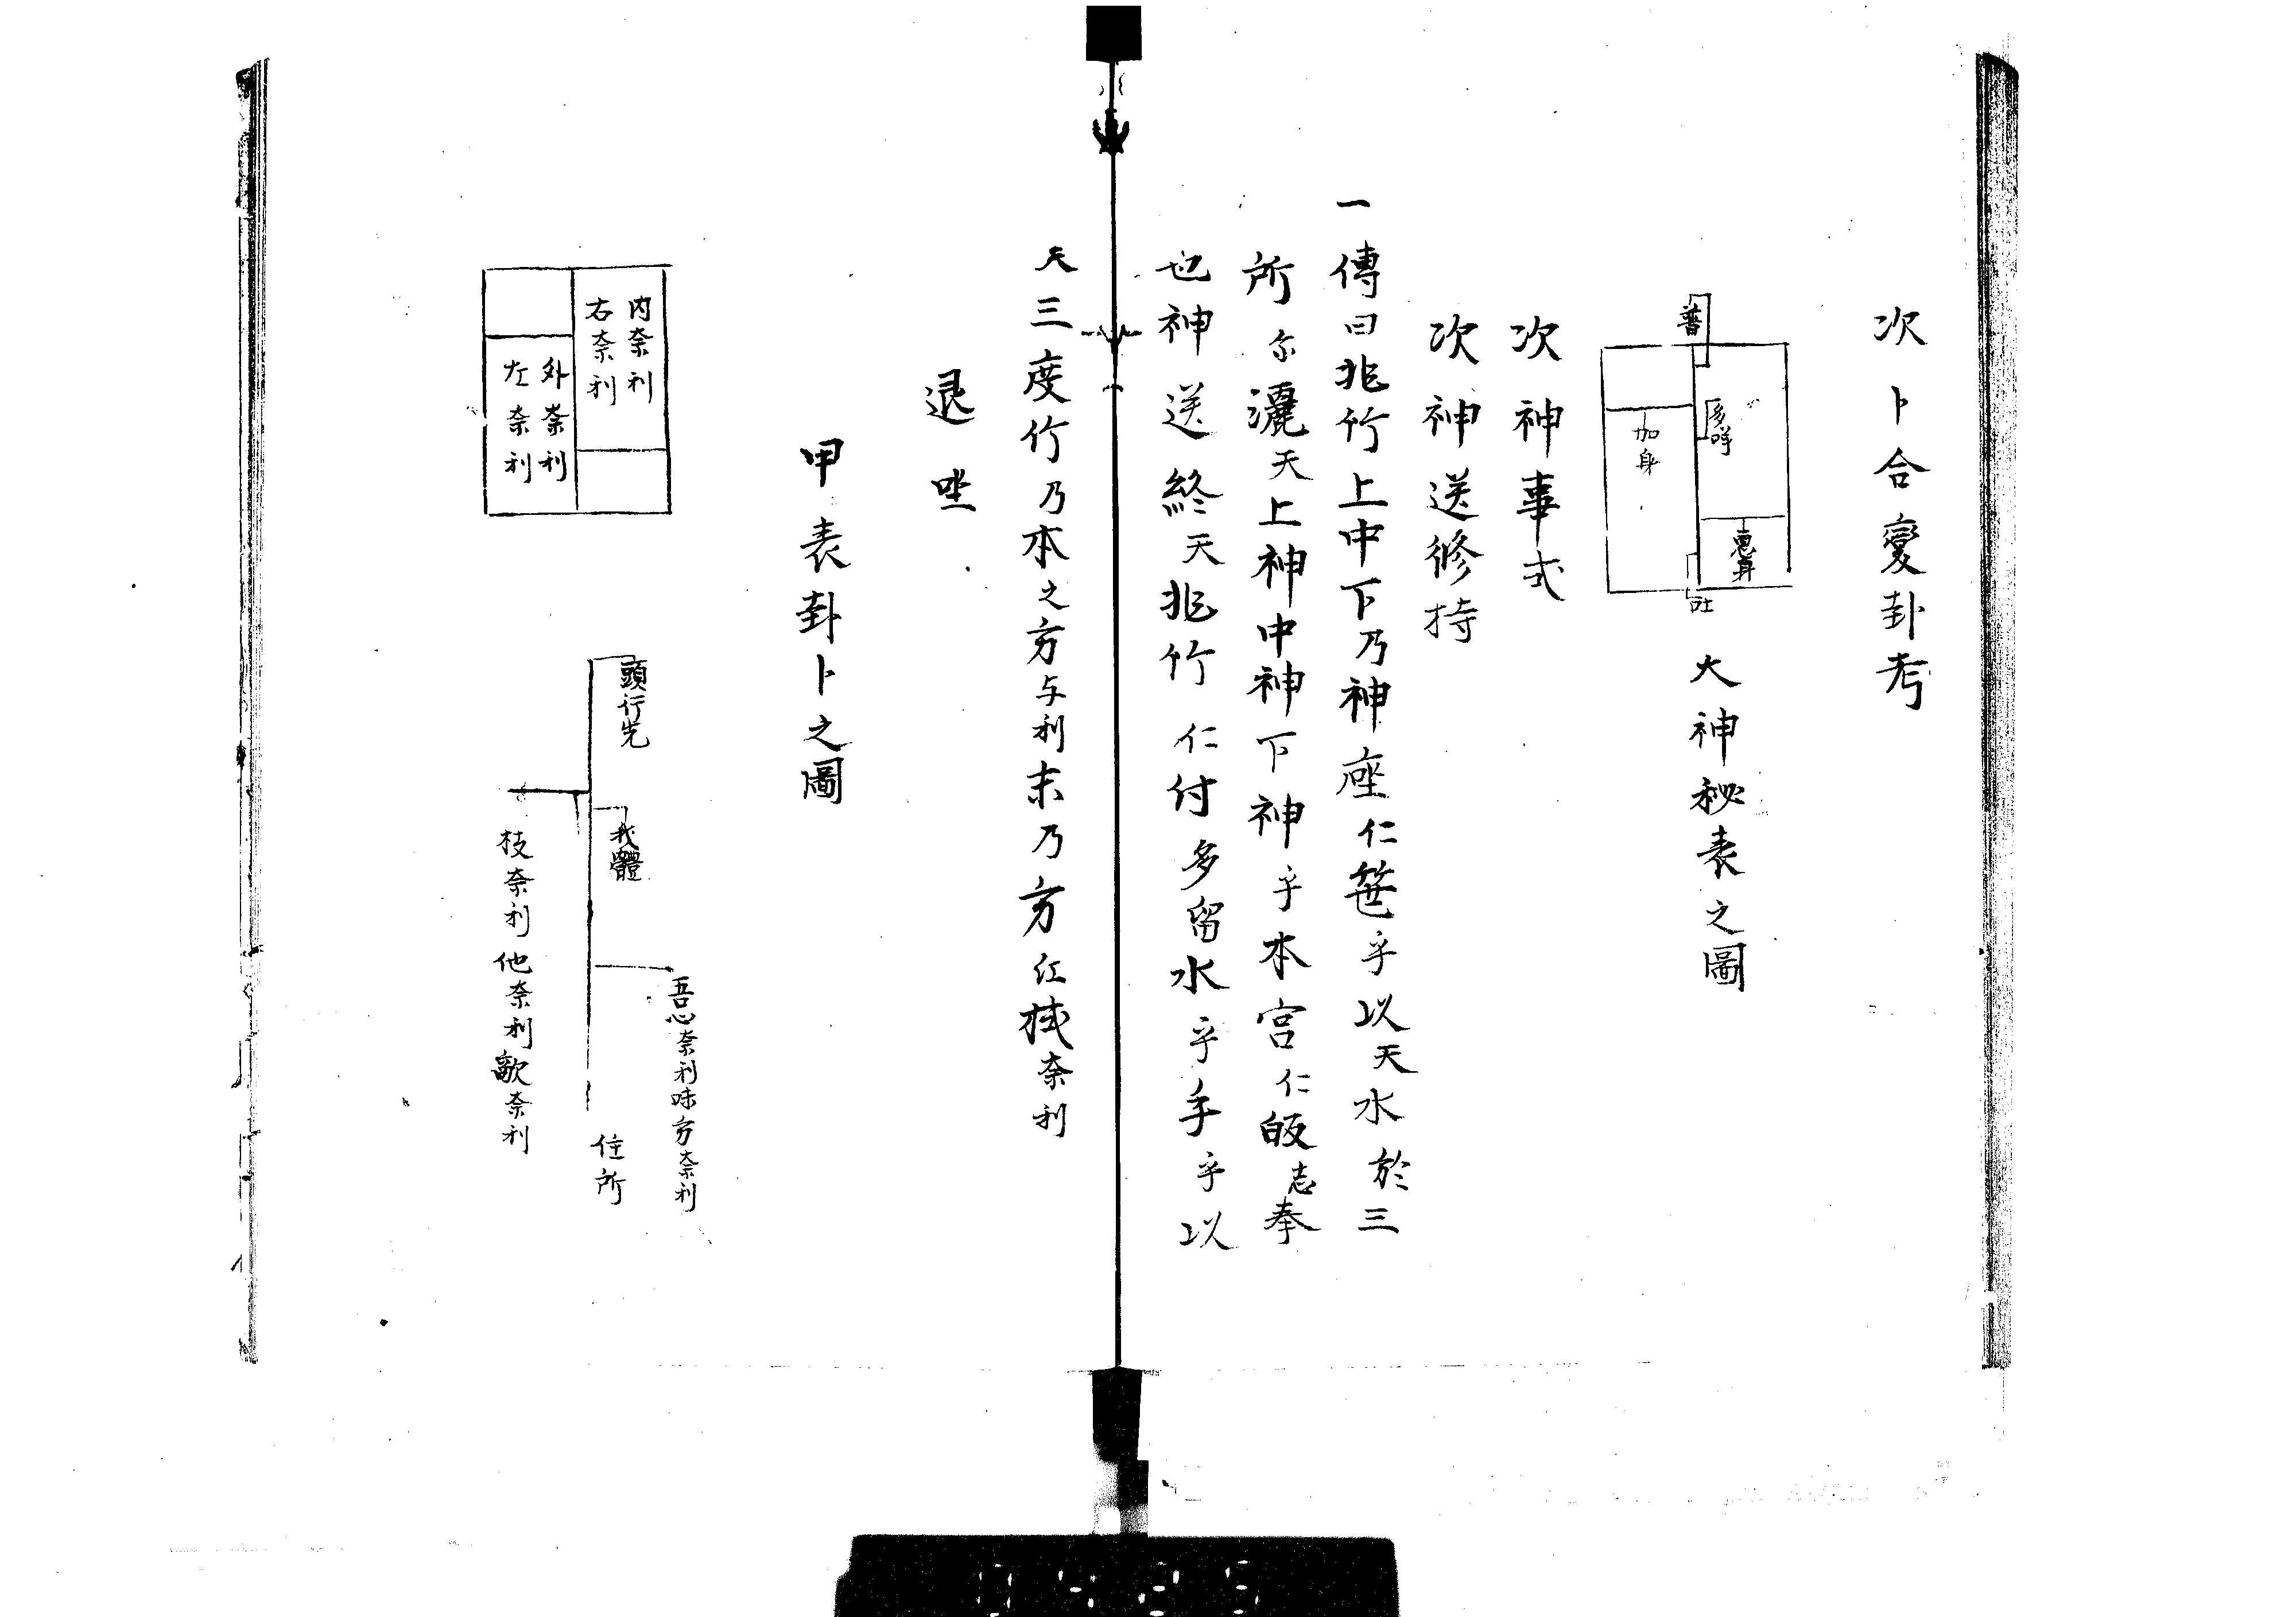 次卜合變卦考
普
加身
吐
大神秘表之圖
次神事式
次神送修持
一傳曰兆竹上中下乃神座仁笹乎以天水於三
所尓灑天上神中神下神乎本宮仁皈志奉
也神送終天兆竹仁付多留水乎手乎以
天三度竹乃本之方与利末乃方江拭奈利
退坐
甲表卦卜之圖
内奈利
右奈利
外奈利
左奈利
頭行先
我體
吾心奈利味方奈利
住所
枝奈利他奈利敵奈利